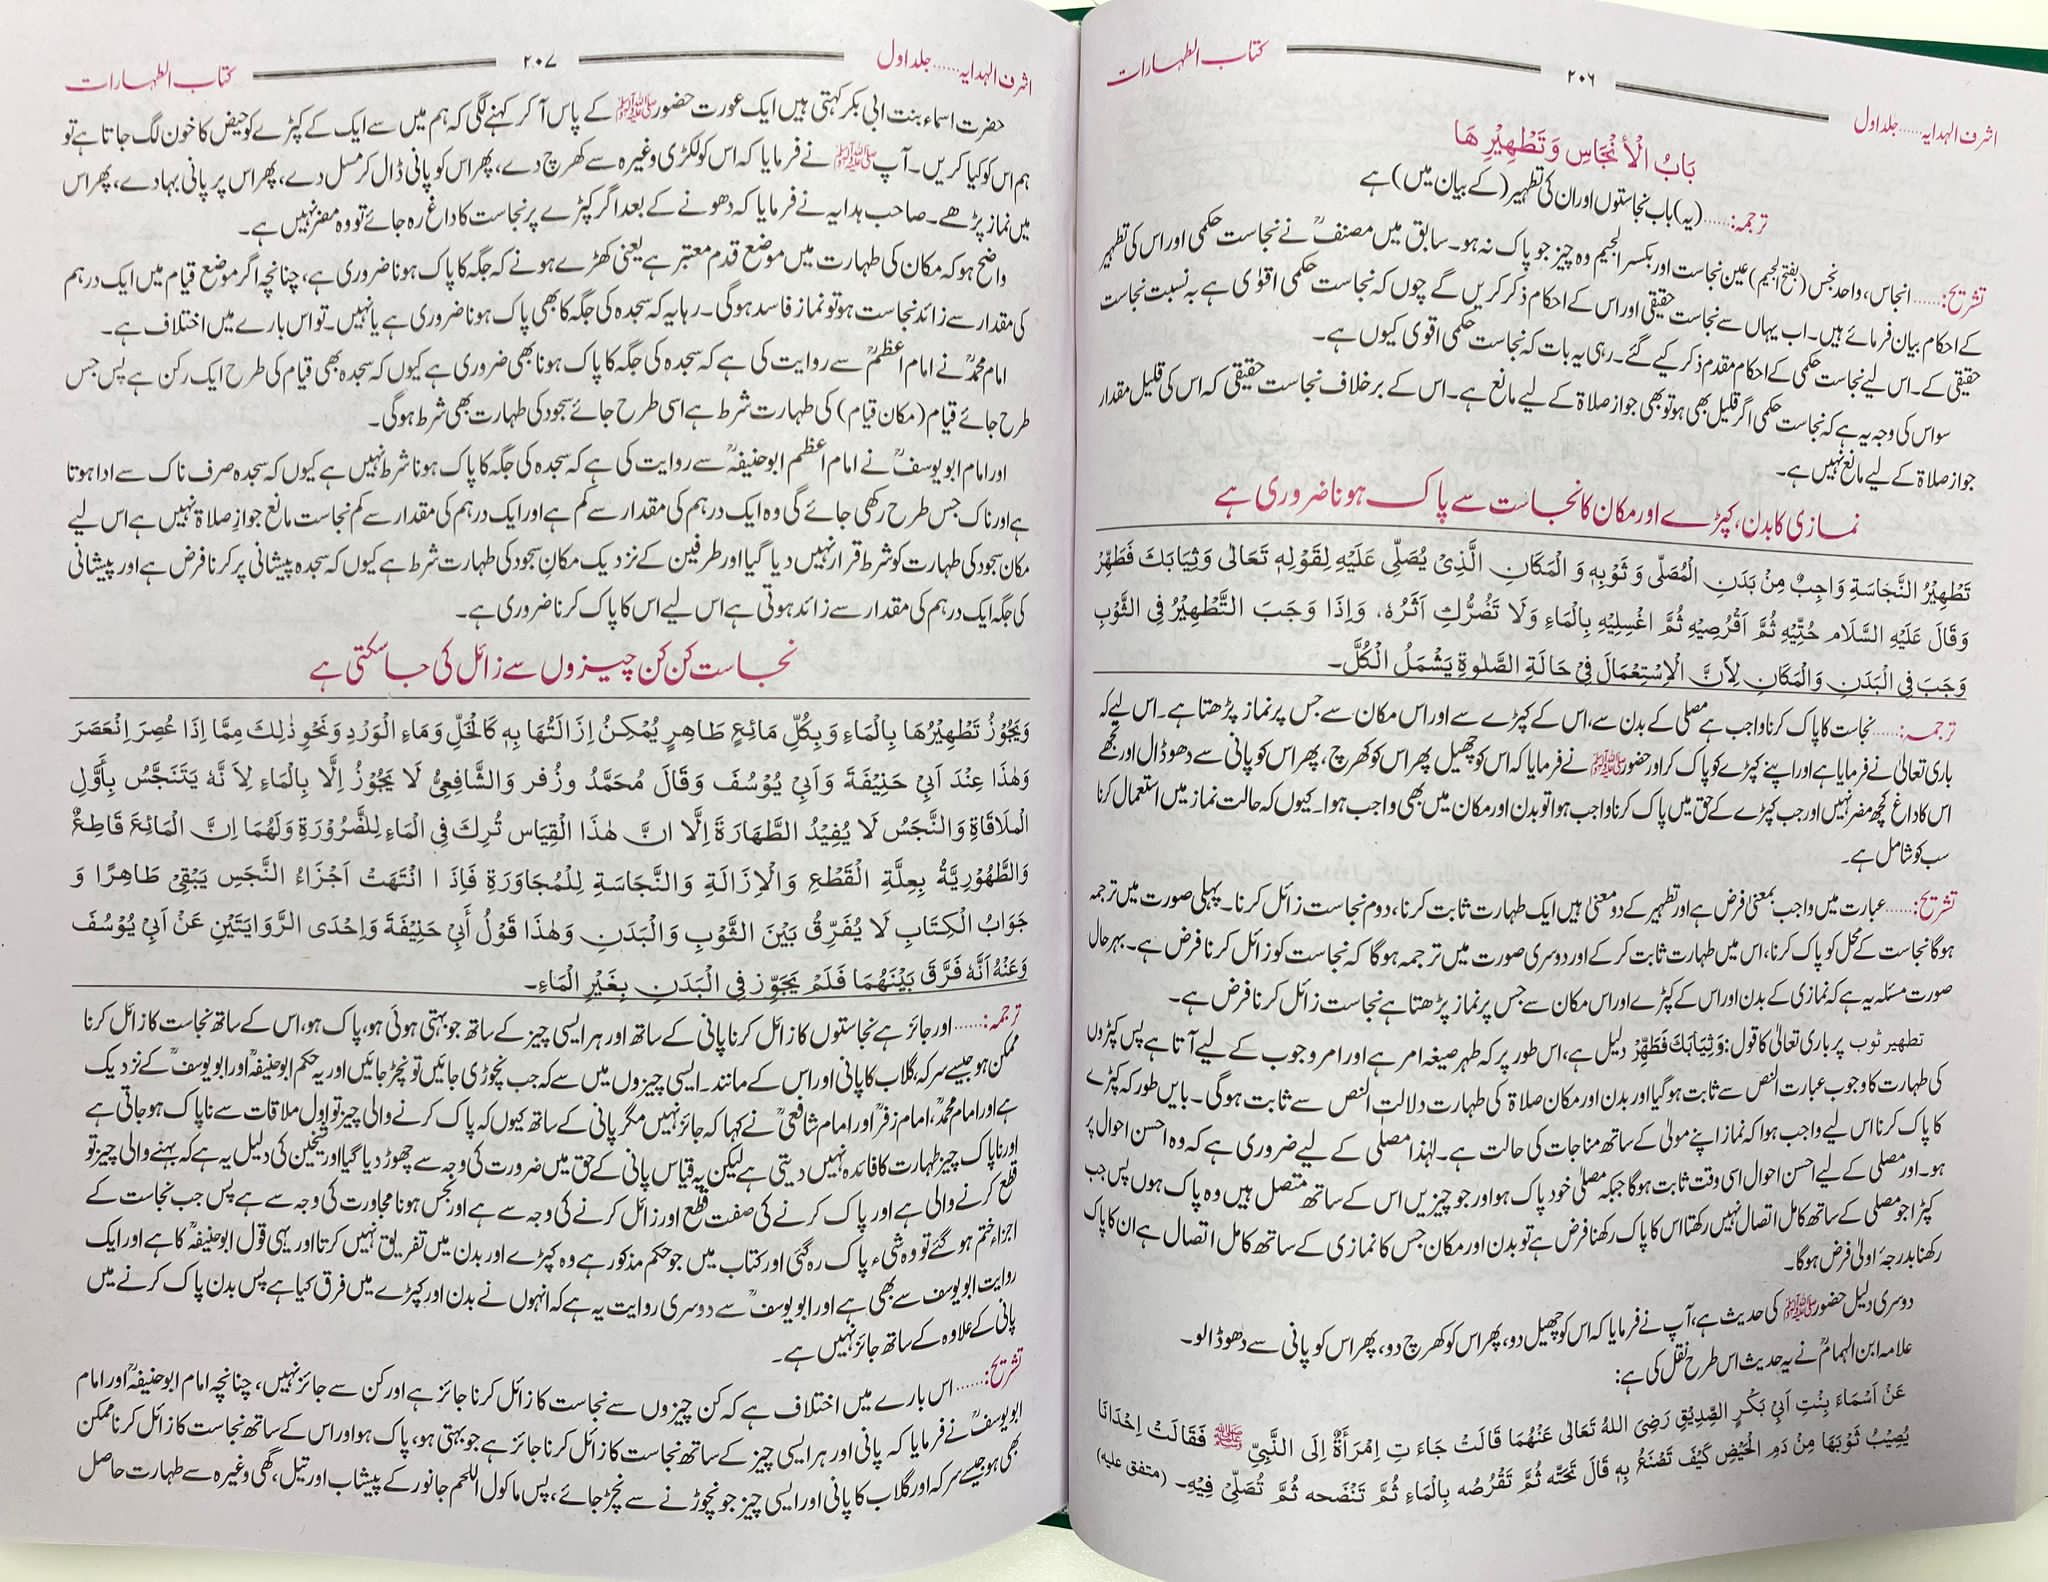 اشرف الہدایہ......جلد اول ۲۰۶ کتاب الطہارات
بَابُ الْأَنْجَاسِ وَتَطْهِيْرِ هَا
ترجمہ:......(یہ) باب نجاستوں اور ان کی تطہیر (کے بیان میں) ہے
تشریح:......انجاس، واحد نجس (بفتح الجیم) عین نجاست اور بکسر الجیم وہ چیز جو پاک نہ ہو۔ سابق میں مصنفؒ نے نجاست حکمی اور اس کی تطہیر
کے احکام بیان فرمائے ہیں۔ اب یہاں سے نجاست حقیقی اور اس کے احکام ذکر کریں گے چوں کہ نجاست حکمی اقوٰی ہے بہ نسبت نجاست
حقیقی کے۔ اس لیے نجاست حکمی کے احکام مقدم ذکر کیے گئے۔ رہی یہ بات کہ نجاست حکمی اقوی کیوں ہے۔
سو اس کی وجہ یہ ہے کہ نجاست حکمی اگر قلیل بھی ہو تو بھی جواز صلاۃ کے لیے مانع ہے۔ اس کے برخلاف نجاست حقیقی کہ اس کی قلیل مقدار
جواز صلاۃ کے لیے مانع نہیں ہے۔
نمازی کا بدن، کپڑے اور مکان کا نجاست سے پاک ہونا ضروری ہے
تَطْهِيْرُ النَّجَاسَةِ وَاجِبٌ مِنْ بَدَنِ الْمُصَلِّى وَ ثَوْبِهٖ وَ الْمَكَانِ الَّذِىْ يُصَلِّى عَلَيْهِ لِقَوْلِهٖ تَعَالٰى وَثِيَابَكَ فَطَهِّرْ
وَقَالَ عَلَيْهِ السَّلَام حُتِّيْهِ ثُمَّ اَقْرُصِيْهِ ثُمَّ اغْسِلِيْهِ بِالْمَاءِ وَلَا تَضُرُّكِ اَثَرُهٗ، وَإِذَا وَجَبَ التَّطْهِيْرُ فِى الثَّوْبِ
وَجَبَ فِى الْبَدَنِ وَالْمَكَانِ لِأَنَّ الْاِسْتِعْمَالَ فِىْ حَالَةِ الصَّلٰوةِ يَشْمَلُ الْكُلَّ۔
ترجمہ:......نجاست کا پاک کرنا واجب ہے مصلی کے بدن سے، اس کے کپڑے سے اور اس مکان سے جس پر نماز پڑھتا ہے۔ اس لیے کہ
باری تعالیٰ نے فرمایا ہے اور اپنے کپڑے کو پاک کر اور حضور ﷺ نے فرمایا کہ اس کو چھیل پھر اس کو کھرچ، پھر اس کو پانی سے دھو ڈال اور تجھے
اس کا داغ کچھ مضر نہیں اور جب کپڑے کے حق میں پاک کرنا واجب ہوا تو بدن اور مکان میں بھی واجب ہوا۔ کیوں کہ حالت نماز میں استعمال کرنا
سب کو شامل ہے۔
تشریح:......عبارت میں واجب بمعنیٰ فرض ہے اور تطہیر کے دو معنیٰ ہیں ایک طہارت ثابت کرنا، دوم نجاست زائل کرنا۔ پہلی صورت میں ترجمہ
ہوگا نجاست کے محل کو پاک کرنا، اس میں طہارت ثابت کرکے اور دوسری صورت میں ترجمہ ہوگا کہ نجاست کو زائل کرنا فرض ہے۔ بہرحال
صورت مسئلہ یہ ہے کہ نمازی کے بدن اور اس کے کپڑے اور اس مکان سے جس پر نماز پڑھتا ہے نجاست زائل کرنا فرض ہے۔
تطہیر ثوب پر باری تعالیٰ کا قول: وَثِيَابَكَ فَطَهِّرْ دلیل ہے، اس طور پر کہ طہر صیغہ امر ہے اور امر وجوب کے لیے آتا ہے پس کپڑوں
کی طہارت کا وجوب عبارت النص سے ثابت ہوگیا اور بدن اور مکان صلاۃ کی طہارت دلالت النص سے ثابت ہوگی۔ بایں طور کہ کپڑے
کا پاک کرنا اس لیے واجب ہوا کہ نماز اپنے مولیٰ کے ساتھ مناجات کی حالت ہے۔ لہٰذا مصلی کے لیے ضروری ہے کہ وہ احسن احوال پر
ہو۔ اور مصلی کے لیے احسن احوال اسی وقت ثابت ہوگا جبکہ مصلیٰ خود پاک ہو اور جو چیزیں اس کے ساتھ متصل ہیں وہ پاک ہوں پس جب
کپڑا جو مصلی کے ساتھ کامل اتصال نہیں رکھتا اس کا پاک رکھنا فرض ہے تو بدن اور مکان جس کا نمازی کے ساتھ کامل اتصال ہے ان کا پاک
رکھنا بدرجۂ اولیٰ فرض ہوگا۔
دوسری دلیل حضور ﷺ کی حدیث ہے، آپ نے فرمایا کہ اس کو چھیل دو، پھر اس کو کھرچ دو، پھر اس کو پانی سے دھو ڈالو۔
علامہ ابن الہمامؒ نے یہ حدیث اس طرح نقل کی ہے:
عَنْ اَسْمَاءَ بِنْتِ اَبِىْ بَكْرٍ الصِّدِيْقِ رَضِىَ اللهُ تَعَالٰى عَنْهُمَا قَالَتْ جَاءَ تِ اِمْرَأَةٌ اِلَى النَّبِىِّ ﷺ فَقَالَتْ اِحْدَانَا
يُصِيْبُ ثَوْبَهَا مِنْ دَمِ الْحَيْضِ كَيْفَ تَصْنَعُ بِهٖ قَالَ تَحَتّه ثُمَّ تَقْرُصُه بِالْمَاءِ ثُمَّ تَنْضَحه ثُمَّ تُصَلِّىْ فِيْهِ۔ (متفق علیه)
اشرف الہدایہ......جلد اول ۲۰۷ کتاب الطہارات
حضرت اسماء بنت ابی بکر کہتی ہیں ایک عورت حضور ﷺ کے پاس آ کر کہنے لگی کہ ہم میں سے ایک کے کپڑے کو حیض کا خون لگ جاتا ہے تو
ہم اس کو کیا کریں۔ آپ ﷺ نے فرمایا کہ اس کو لکڑی وغیرہ سے کھرچ دے، پھر اس کو پانی ڈال کر مسل دے، پھر اس پر پانی بہادے، پھر اس
میں نماز پڑھے۔ صاحب ہدایہ نے فرمایا کہ دھونے کے بعد اگر کپڑے پر نجاست کا داغ رہ جائے تو وہ مضر نہیں ہے۔
واضح ہو کہ مکان کی طہارت میں موضع قدم معتبر ہے یعنی کھڑے ہونے کہ جگہ کا پاک ہونا ضروری ہے، چنانچہ اگر موضع قیام میں ایک درہم
کی مقدار سے زائد نجاست ہو تو نماز فاسد ہوگی۔ رہا یہ کہ سجدہ کی جگہ کا بھی پاک ہونا ضروری ہے یا نہیں۔ تو اس بارے میں اختلاف ہے۔
امام محمدؒ نے امام اعظمؒ سے روایت کی ہے کہ سجدہ کی جگہ کا پاک ہونا بھی ضروری ہے کیوں کہ سجدہ بھی قیام کی طرح ایک رکن ہے پس جس
طرح جائے قیام (مکان قیام) کی طہارت شرط ہے اسی طرح جائے سجود کی طہارت بھی شرط ہوگی۔
اور امام ابو یوسفؒ نے امام اعظم ابو حنیفہؒ سے روایت کی ہے کہ سجدہ کی جگہ کا پاک ہونا شرط نہیں ہے کیوں کہ سجدہ صرف ناک سے ادا ہوتا
ہے اور ناک جس طرح رکھی جائے گی وہ ایک درہم کی مقدار سے کم ہے اور ایک درہم کی مقدار سے کم نجاست مانع جوازِ صلاۃ نہیں ہے اس لیے
مکان سجود کی طہارت کو شرط قرار نہیں دیا گیا اور طرفین کے نزدیک مکانِ سجود کی طہارت شرط ہے کیوں کہ سجدہ پیشانی پر کرنا فرض ہے اور پیشانی
کی جگہ ایک درہم کی مقدار سے زائد ہوتی ہے اس لیے اس کا پاک کرنا ضروری ہے۔
نجاست کن کن چیزوں سے زائل کی جا سکتی ہے
وَيَجُوْزُ تَطْهِيْرُهَا بِالْمَاءِ وَبِكُلِّ مَائِعٍ طَاهِرٍ يُمْكِنُ اِزَالَتُهَا بِهٖ كَالْخَلِّ وَمَاءِ الْوَرْدِ وَنَحْوِ ذٰلِكَ مِمَّا اِذَا عُصِرَ اِنْعَصَرَ
وَهٰذَا عِنْدَ اَبِىْ حَنِيْفَةَ وَاَبِىْ يُوْسُفَ وَقَالَ مُحَمَّدُ وزُفر وَالشَّافِعِىُّ لَا يَجُوْزُ اِلَّا بِالْمَاءِ لِاَ نَّهٗ يَتَنَجَّسُ بِأَوَّلِ
الْملَاقَاةِ وَالنَّجَسُ لَا يُفِيْدُ الطَّهَارَةَ اِلَّا انَّ هٰذَا الْقِيَاس تُرِكَ فِى الْمَاءِ لِلضَّرُوْرَةِ وَلَهُمَا اِنَّ الْمَائِعَ قَاطِعٌ
وَالطَّهُوْرِيَّةُ بِعِلَّةِ الْقَطْعِ وَالْاِزَالَةِ وَالنَّجَاسَةِ لِلْمُجَاوَرَةِ فَاِذَ ا انْتَهَتْ اَجْزَاءُ النَّجَسِ يَبْقٰى طَاهِرًا وَ
جَوَابُ الْكِتَابِ لَا يُفَرِّقُ بَيْنَ الثَّوْبِ وَالْبَدَنِ وَهٰذَا قَوْلُ أَبِىْ حَنِيْفَةَ وَاِحْدَى الرَّوَايَتَيْنِ عَنْ اَبِىْ يُوْسُفَ
وَعَنْهُ اَنَّهٗ فَرَّقَ بَيْنَهُمَا فَلَمْ يَجَوِّز فِى الْبَدَنِ بِغَيْرِ الْمَاءِ۔
ترجمہ:......اور جائز ہے نجاستوں کا زائل کرنا پانی کے ساتھ اور ہر ایسی چیز کے ساتھ جو بہتی ہوئی ہو، پاک ہو، اس کے ساتھ نجاست کا زائل کرنا
ممکن ہو جیسے سرکہ، گلاب کا پانی اور اس کے مانند۔ ایسی چیزوں میں سے کہ جب نچوڑی جائیں تو نچڑ جائیں اور یہ حکم ابو حنیفہؒ اور ابو یوسفؒ کے نزدیک
ہے اور امام محمدؒ، امام زفرؒ اور امام شافعیؒ نے کہا کہ جائز نہیں مگر پانی کے ساتھ کیوں کہ پاک کرنے والی چیز تو اول ملاقات سے ناپاک ہو جاتی ہے
اور ناپاک چیز طہارت کا فائدہ نہیں دیتی ہے لیکن یہ قیاس پانی کے حق میں ضرورت کی وجہ سے چھوڑ دیا گیا اور شیخین کی دلیل یہ ہے کہ بہنے والی چیز تو
قطع کرنے والی ہے اور پاک کرنے کی صفت قطع اور زائل کرنے کی وجہ سے ہے اور نجس ہونا مجاورت کی وجہ سے ہے پس جب نجاست کے
اجزاء ختم ہو گئے تو وہ شیء پاک رہ گئی اور کتاب میں جو حکم مذکور ہے وہ کپڑے اور بدن میں تفریق نہیں کرتا اور یہی قول ابو حنیفہؒ کا ہے اور ایک
روایت ابو یوسف سے بھی ہے اور ابو یوسفؒ سے دوسری روایت یہ ہے کہ انہوں نے بدن اور کپڑے میں فرق کیا ہے پس بدن پاک کرنے میں
پانی کے علاوہ کے ساتھ جائز نہیں ہے۔
تشریح:......اس بارے میں اختلاف ہے کہ کن چیزوں سے نجاست کا زائل کرنا جائز ہے اور کن سے جائز نہیں، چنانچہ امام ابو حنیفہؒ اور امام
ابو یوسفؒ نے فرمایا کہ پانی اور ہر ایسی چیز کے ساتھ نجاست کا زائل کرنا جائز ہے جو بہتی ہو، پاک ہو اور اس کے ساتھ نجاست کا زائل کرنا ممکن
بھی ہو جیسے سرکہ اور گلاب کا پانی اور ایسی چیز جو نچوڑنے سے نچڑ جائے، پس ماکول اللحم جانور کے پیشاب اور تیل، گھی وغیرہ سے طہارت حاصل